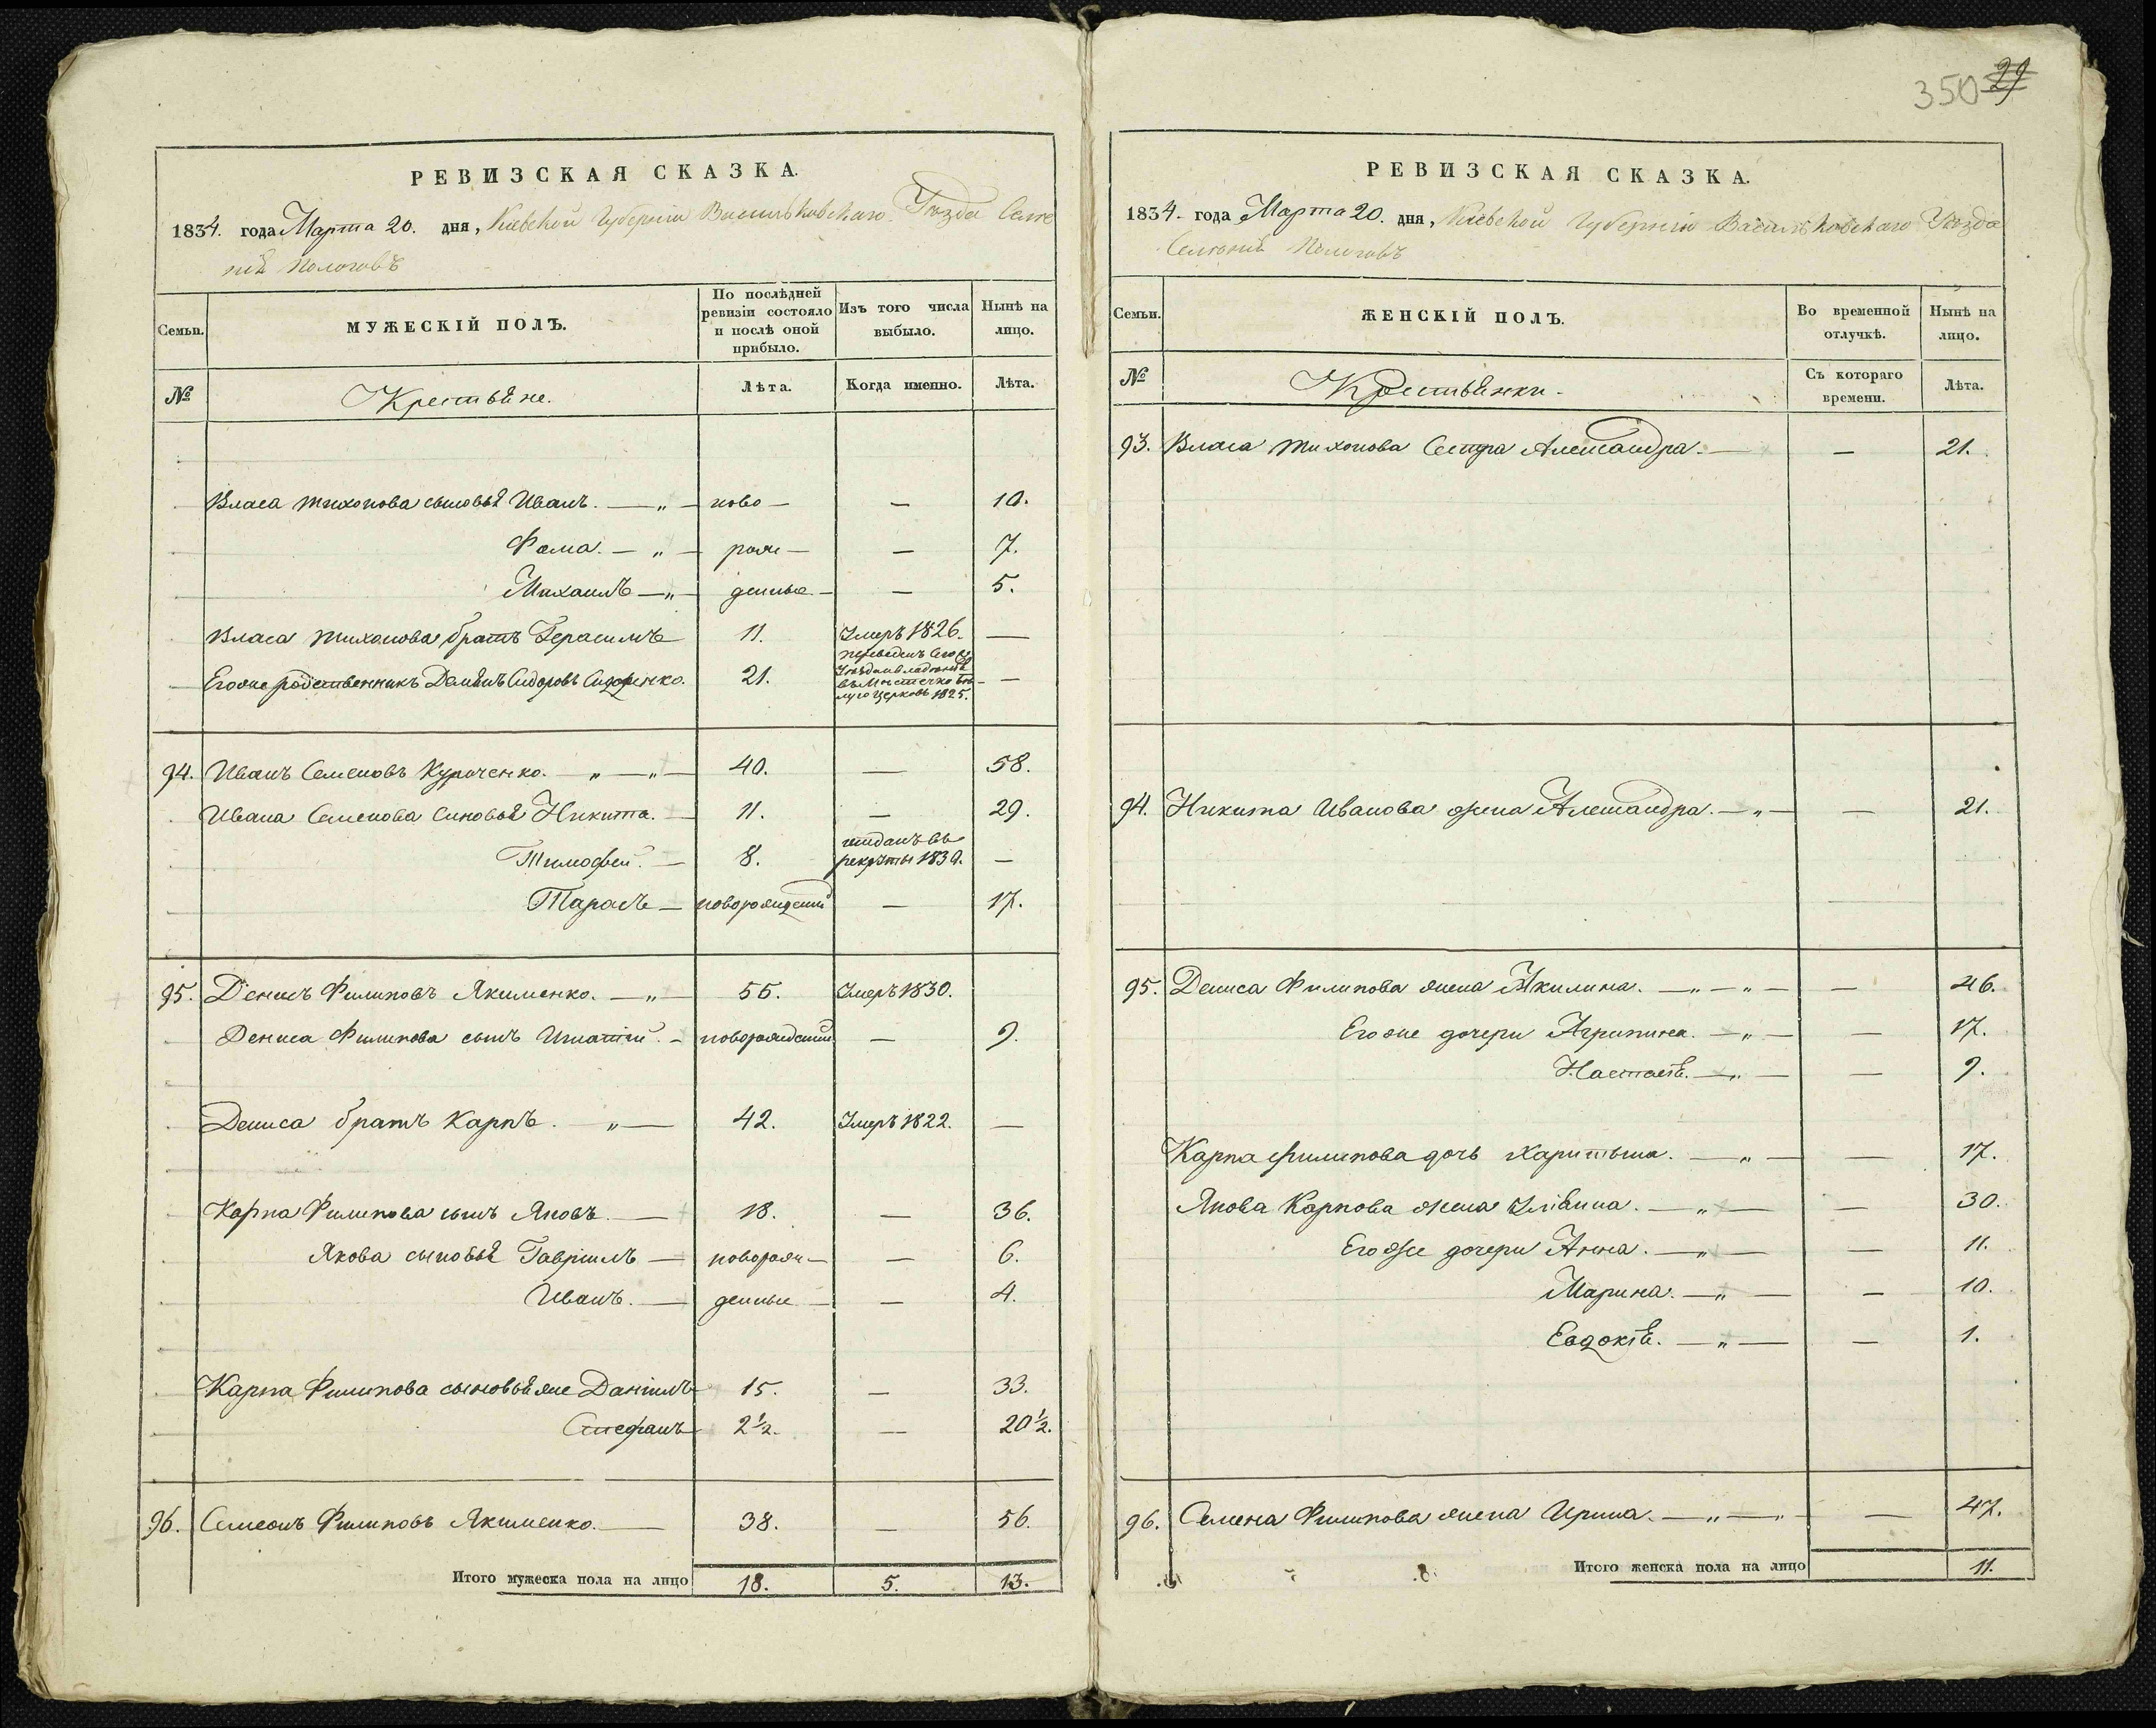 350 29
РЕВИЗСКАЯ СКАЗКА.
1834. года Марта 20. дня, Кіевской Губерніи Васильковскаго Уѣзда Селе
нія Пологовъ
Семьи.
МУЖЕСКІЙ ПОЛЪ.
По послѣдней ревизіи состояло и послѣ оной прибыло.
Изъ того числа выбыло.
Нынѣ на лицо.
№
Крестьяне.
Лѣта.
Когда именно.
Лѣта.
Власа Тихонова сыновья Иванъ. — „ — ново — — 10.
Фома. — „ — рож — — 7.
Михаилъ — „ — денные — — 5.
Власа Тихонова братъ Герасимъ 11. Умеръ 1826. —
Егоже родственникъ Даміянъ Сидоровъ Сидоренко. 21. переведенъ
въ Местечко Бѣ
лую Церковь 1825. —
94. Иванъ Семеновъ Куриченко. — „ — „ — 40. — 58.
Ивана Семенова Сыновья Никита. — 11. — 29.
Тимофей. — 8. отданъ въ
рекруты 1830. —
Тарасъ — новорожденный — 17.
95. Денисъ Филиповъ Якименко. — „ — 55. Умеръ 1830.
Дениса Филипова сынъ Игнатій. — новорожденный — 9.
Дениса братъ Карпъ. — „ — 42. Умеръ 1822. —
Карпа Филипова сынъ Яковъ. — 18. — 36.
Якова сыновья Гавріилъ — новорож — — 6.
Иванъ. — денные — — 4.
Карпа Филипова сыновья же Даніилъ 15. — 33.
Стефанъ 2½. — 20½.
96. Семеонъ Филиповъ Якименко. — 38. — 56.
Итого мужеска пола на лицо 18. 5. 13.
РЕВИЗСКАЯ СКАЗКА.
1834. года Марта 20. дня, Кіевской Губерніи Васильковскаго Уѣзда
Селенія Пологовъ
Семьи.
ЖЕНСКІЙ ПОЛЪ.
Во временной отлучкѣ.
Нынѣ на лицо.
№
Крестьянки.
Съ котораго времени.
Лѣта.
93. Власа Тихонова Сестра Александра. — — 21.
94. Никита Иванова жена Александра. — „ — — 21.
95. Дениса Филипова жена Акилина. — „ — „ — — 46.
Егоже дочери Агрипина. — „ — — 17.
Настасія. — „ — — 9.
Карпа Филипова дочь Харитына. — „ — — 17.
Якова Карпова жена Уліяна. — „ — — 30.
Егоже дочери Анна. — „ — — 11.
Марина. — „ — — 10.
Евдокія. — „ — — 1.
96. Семена Филипова жена Ирина. — „ — „ — — 47.
Итого женска пола на лицо 11.